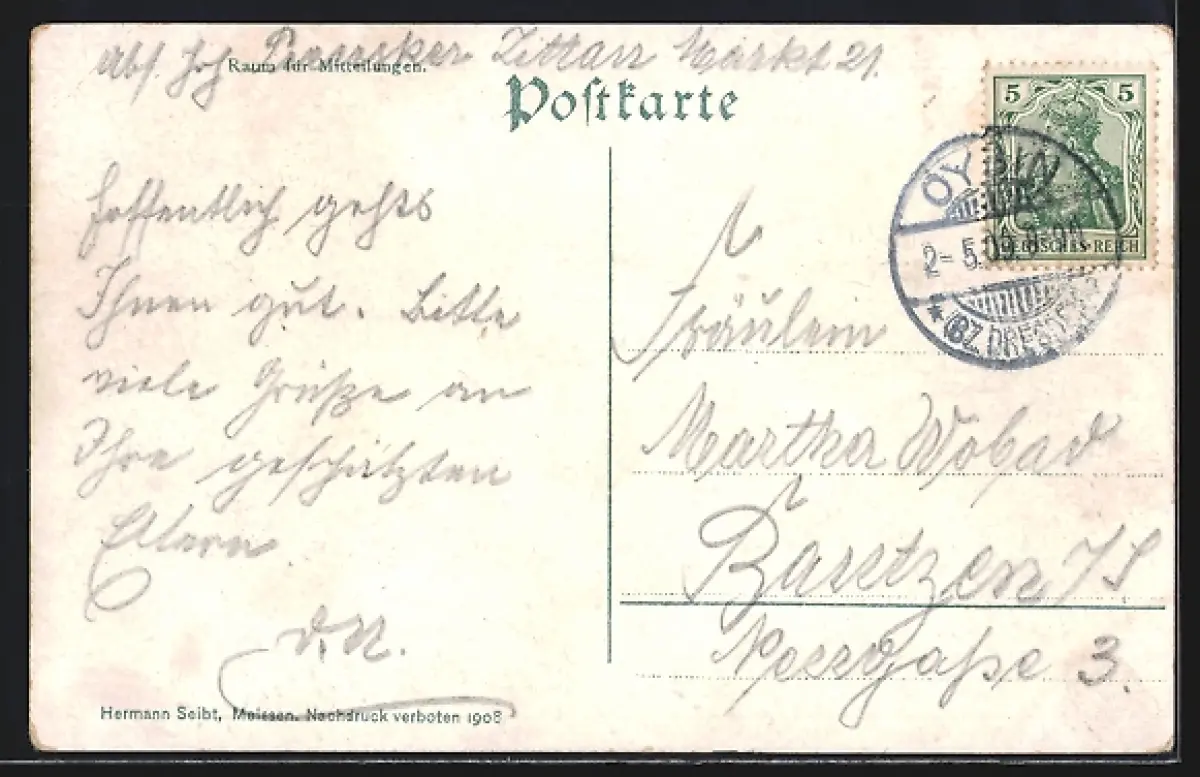 Abs. Zittau Markt 21.
Raum für Mitteilungen.
Postkarte
5 5
DEUTSCHES REICH
OYBIN
2-5.09.
* (BZ. DRESDEN)
Hoffentlich gehts
Ihnen gut. Bitte
viele Grüße an
Ihre geschätzten
Eltern
D. O.
Fräulein
Martha Wobad
Bautzen i/S
3.
Hermann Seibt, Meissen. Nachdruck verboten 1908